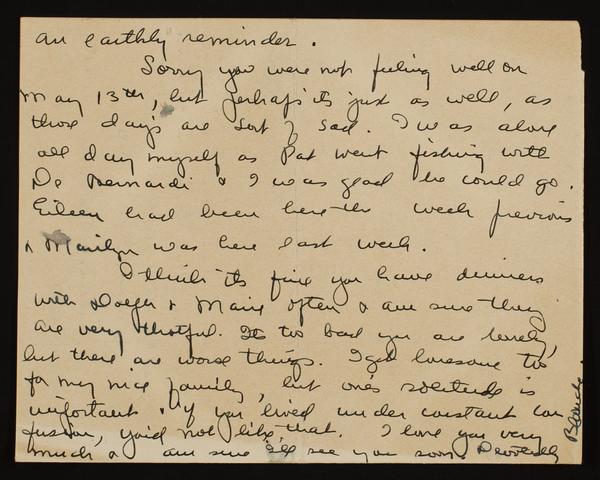 an earthly reminder.
Sorry you were not feeling well on
May 13th, but perhaps its just as well, as
those days are sort of sad. I was alone
all day myself as Pat went fishing with
De Bernardi & I was glad he could go.
Eileen had been here the week previous
& Marilyn was here last week.
I think its fine you have dinners
with & Marie often & am sure they
are very thotful. Its too bad you are lonely,
but there are worse things. I get lonesome too
for my nice family, but one's solitude is
important & if you lived under constant con
fusion, you'd not like that. I love you very
much & am sure I'll see you soon. Devotedly
Blanche